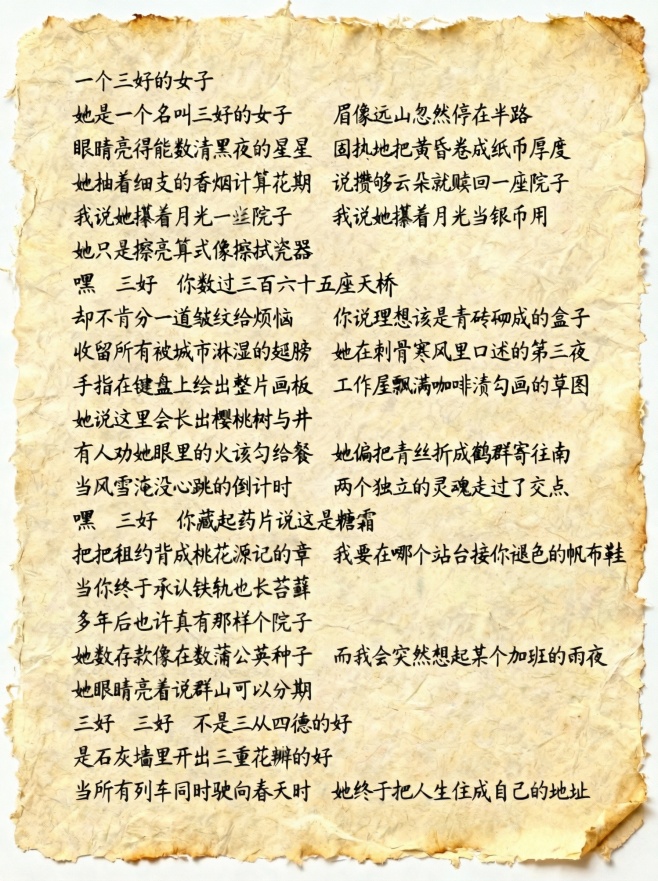 一个三好的女子
她是一个名叫三好的女子 眉像远山忽然停在半路
眼睛亮得能数清黑夜的星星 固执地把黄昏卷成纸币厚度
她抽着细支的香烟计算花期 说攒够云朵就赎回一座院子
我说她攥着月光一 院子 我说她攥着月光当银币用
她只是擦亮算式像擦拭瓷器
嘿 三好 你数过三百六十五座天桥
却不肯分一道皱纹给烦恼 你说理想该是青砖砌成的盒子
收留所有被城市淋湿的翅膀 她在刺骨寒风里口述的第三夜
手指在键盘上绘出整片画板 工作屋飘满咖啡渍勾画的草图
她说这里会长出樱桃树与井
有人劝她眼里的火该匀给餐 她偏把青丝折成鹤群寄往南
当风雪淹没心跳的倒计时 两个独立的灵魂走过了交点
嘿 三好 你藏起药片说这是糖霜
把把租约背成桃花源记的章 我要在哪个站台接你褪色的帆布鞋
当你终于承认铁轨也长苔藓
多年后也许真有那样个院子
她数存款像在数蒲公英种子 而我会突然想起某个加班的雨夜
她眼睛亮着说群山可以分期
三好 三好 不是三从四德的好
是石灰墙里开出三重花瓣的好
当所有列车同时驶向春天时 她终于把人生住成自己的地址